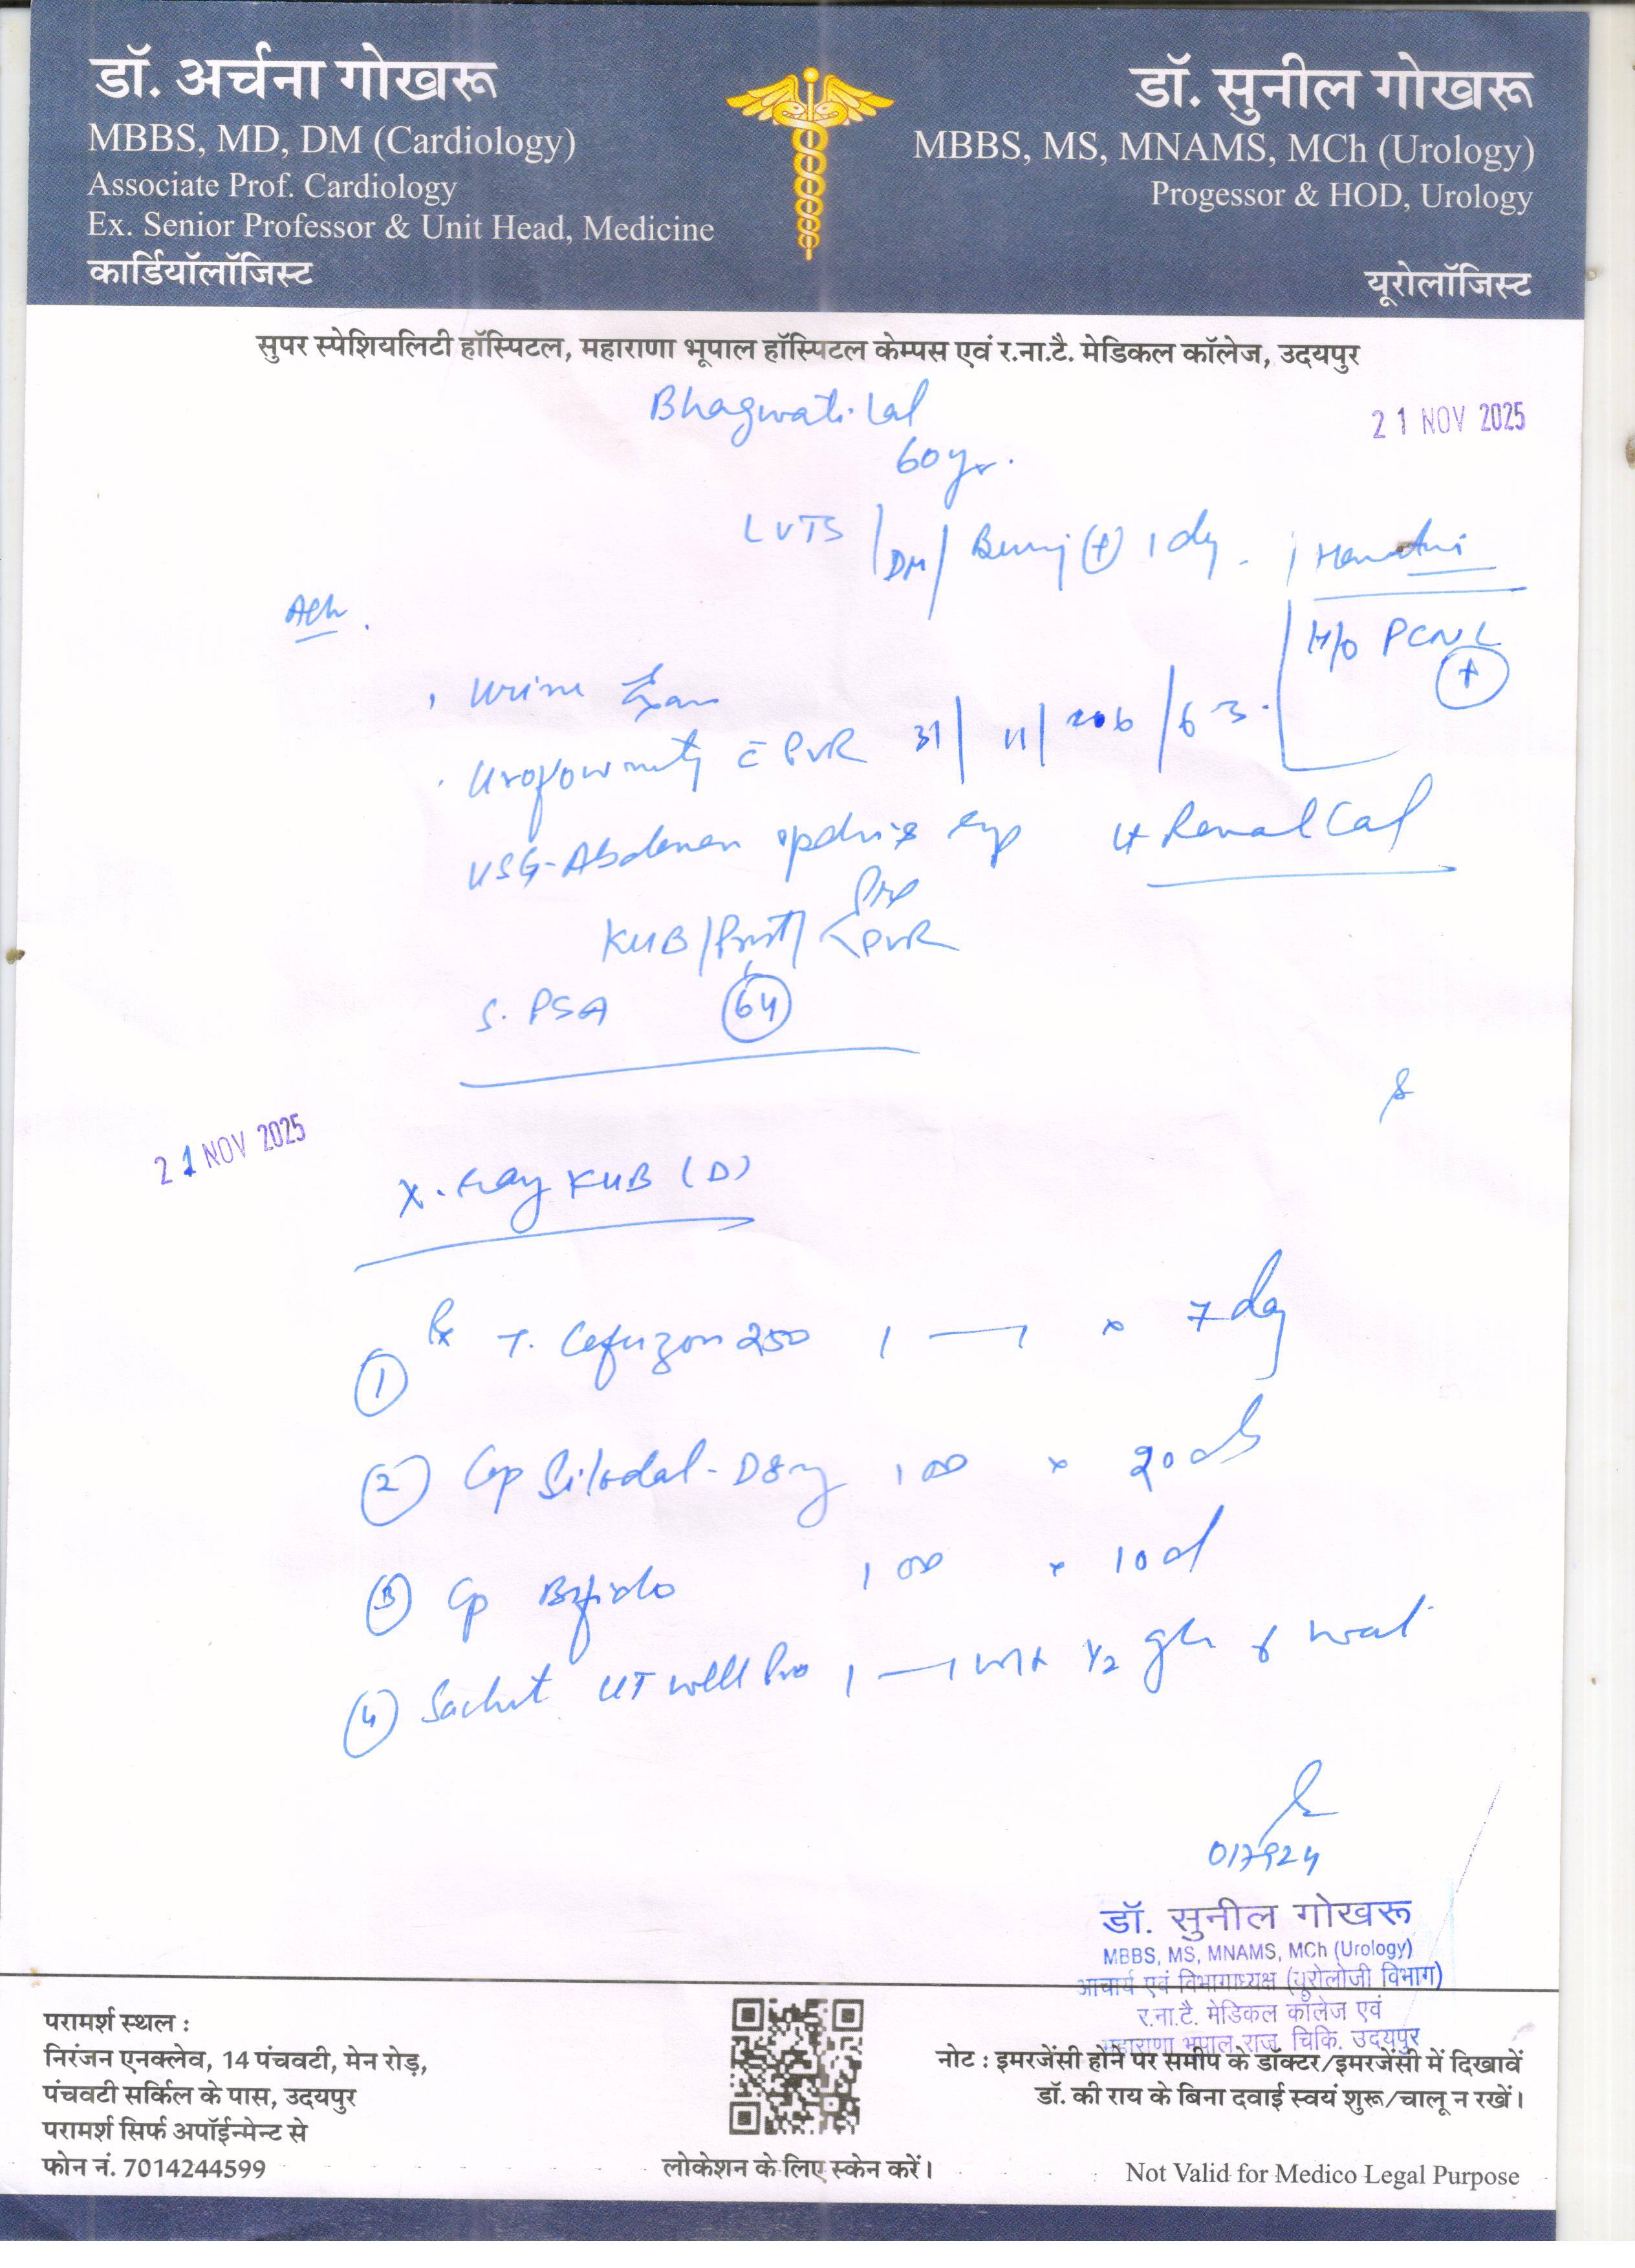 डॉ. अर्चना गोखरू
MBBS, MD, DM (Cardiology)
Associate Prof. Cardiology
Ex. Senior Professor & Unit Head, Medicine
कार्डियॉलॉजिस्ट
डॉ. सुनील गोखरू
MBBS, MS, MNAMS, MCh (Urology)
Progessor & HOD, Urology
यूरोलॉजिस्ट
सुपर स्पेशियलिटी हॉस्पिटल, महाराणा भूपाल हॉस्पिटल केम्पस एवं र.ना.टै. मेडिकल कॉलेज, उदयपुर
Bhagwati Lal
21 NOV 2025
60 yr.
LUTS / DM / (+) 1 day
H/O PCNL (+)
Urine Exam
Uroflowmetry c̄ PVR 31 / 11 / 206 / 63
USG-Abdomen Lt Renal Cal
KUB / Prost / Pre PVR
S. PSA 64
21 NOV 2025
X-ray KUB (D)
Rx
① T. Cefuzon 250 1 — 1 × 7 day
② Cap Silodal-D8mg 1 OD × 20 d
③ Cp Bifido 1 OD × 10 d
④ Sachet UT well Pro 1 — 1 1/2 of wat
017924
डॉ. सुनील गोखरू
MBBS, MS, MNAMS, MCh (Urology)
आचार्य एवं विभागाध्यक्ष (यूरोलोजी विभाग)
र.ना.टै. मेडिकल कॉलेज एवं
महाराणा भूपाल राज. चिकि. उदयपुर
परामर्श स्थल :
निरंजन एनक्लेव, 14 पंचवटी, मेन रोड़,
पंचवटी सर्किल के पास, उदयपुर
परामर्श सिर्फ अपॉईन्मेन्ट से
फोन नं. 7014244599
लोकेशन के लिए स्केन करें।
नोट : इमरजेंसी होने पर समीप के डॉक्टर/इमरजेंसी में दिखावें
डॉ. की राय के बिना दवाई स्वयं शुरू/चालू न रखें।
Not Valid for Medico Legal Purpose